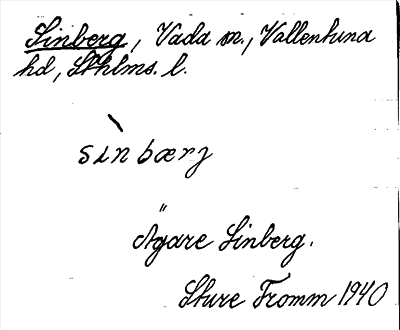 Sinberg, Vada sn., Vallentuna
hd, Sthlms. l.
sìnbærj
Ägare Sinberg.
Sture Fromm 1940